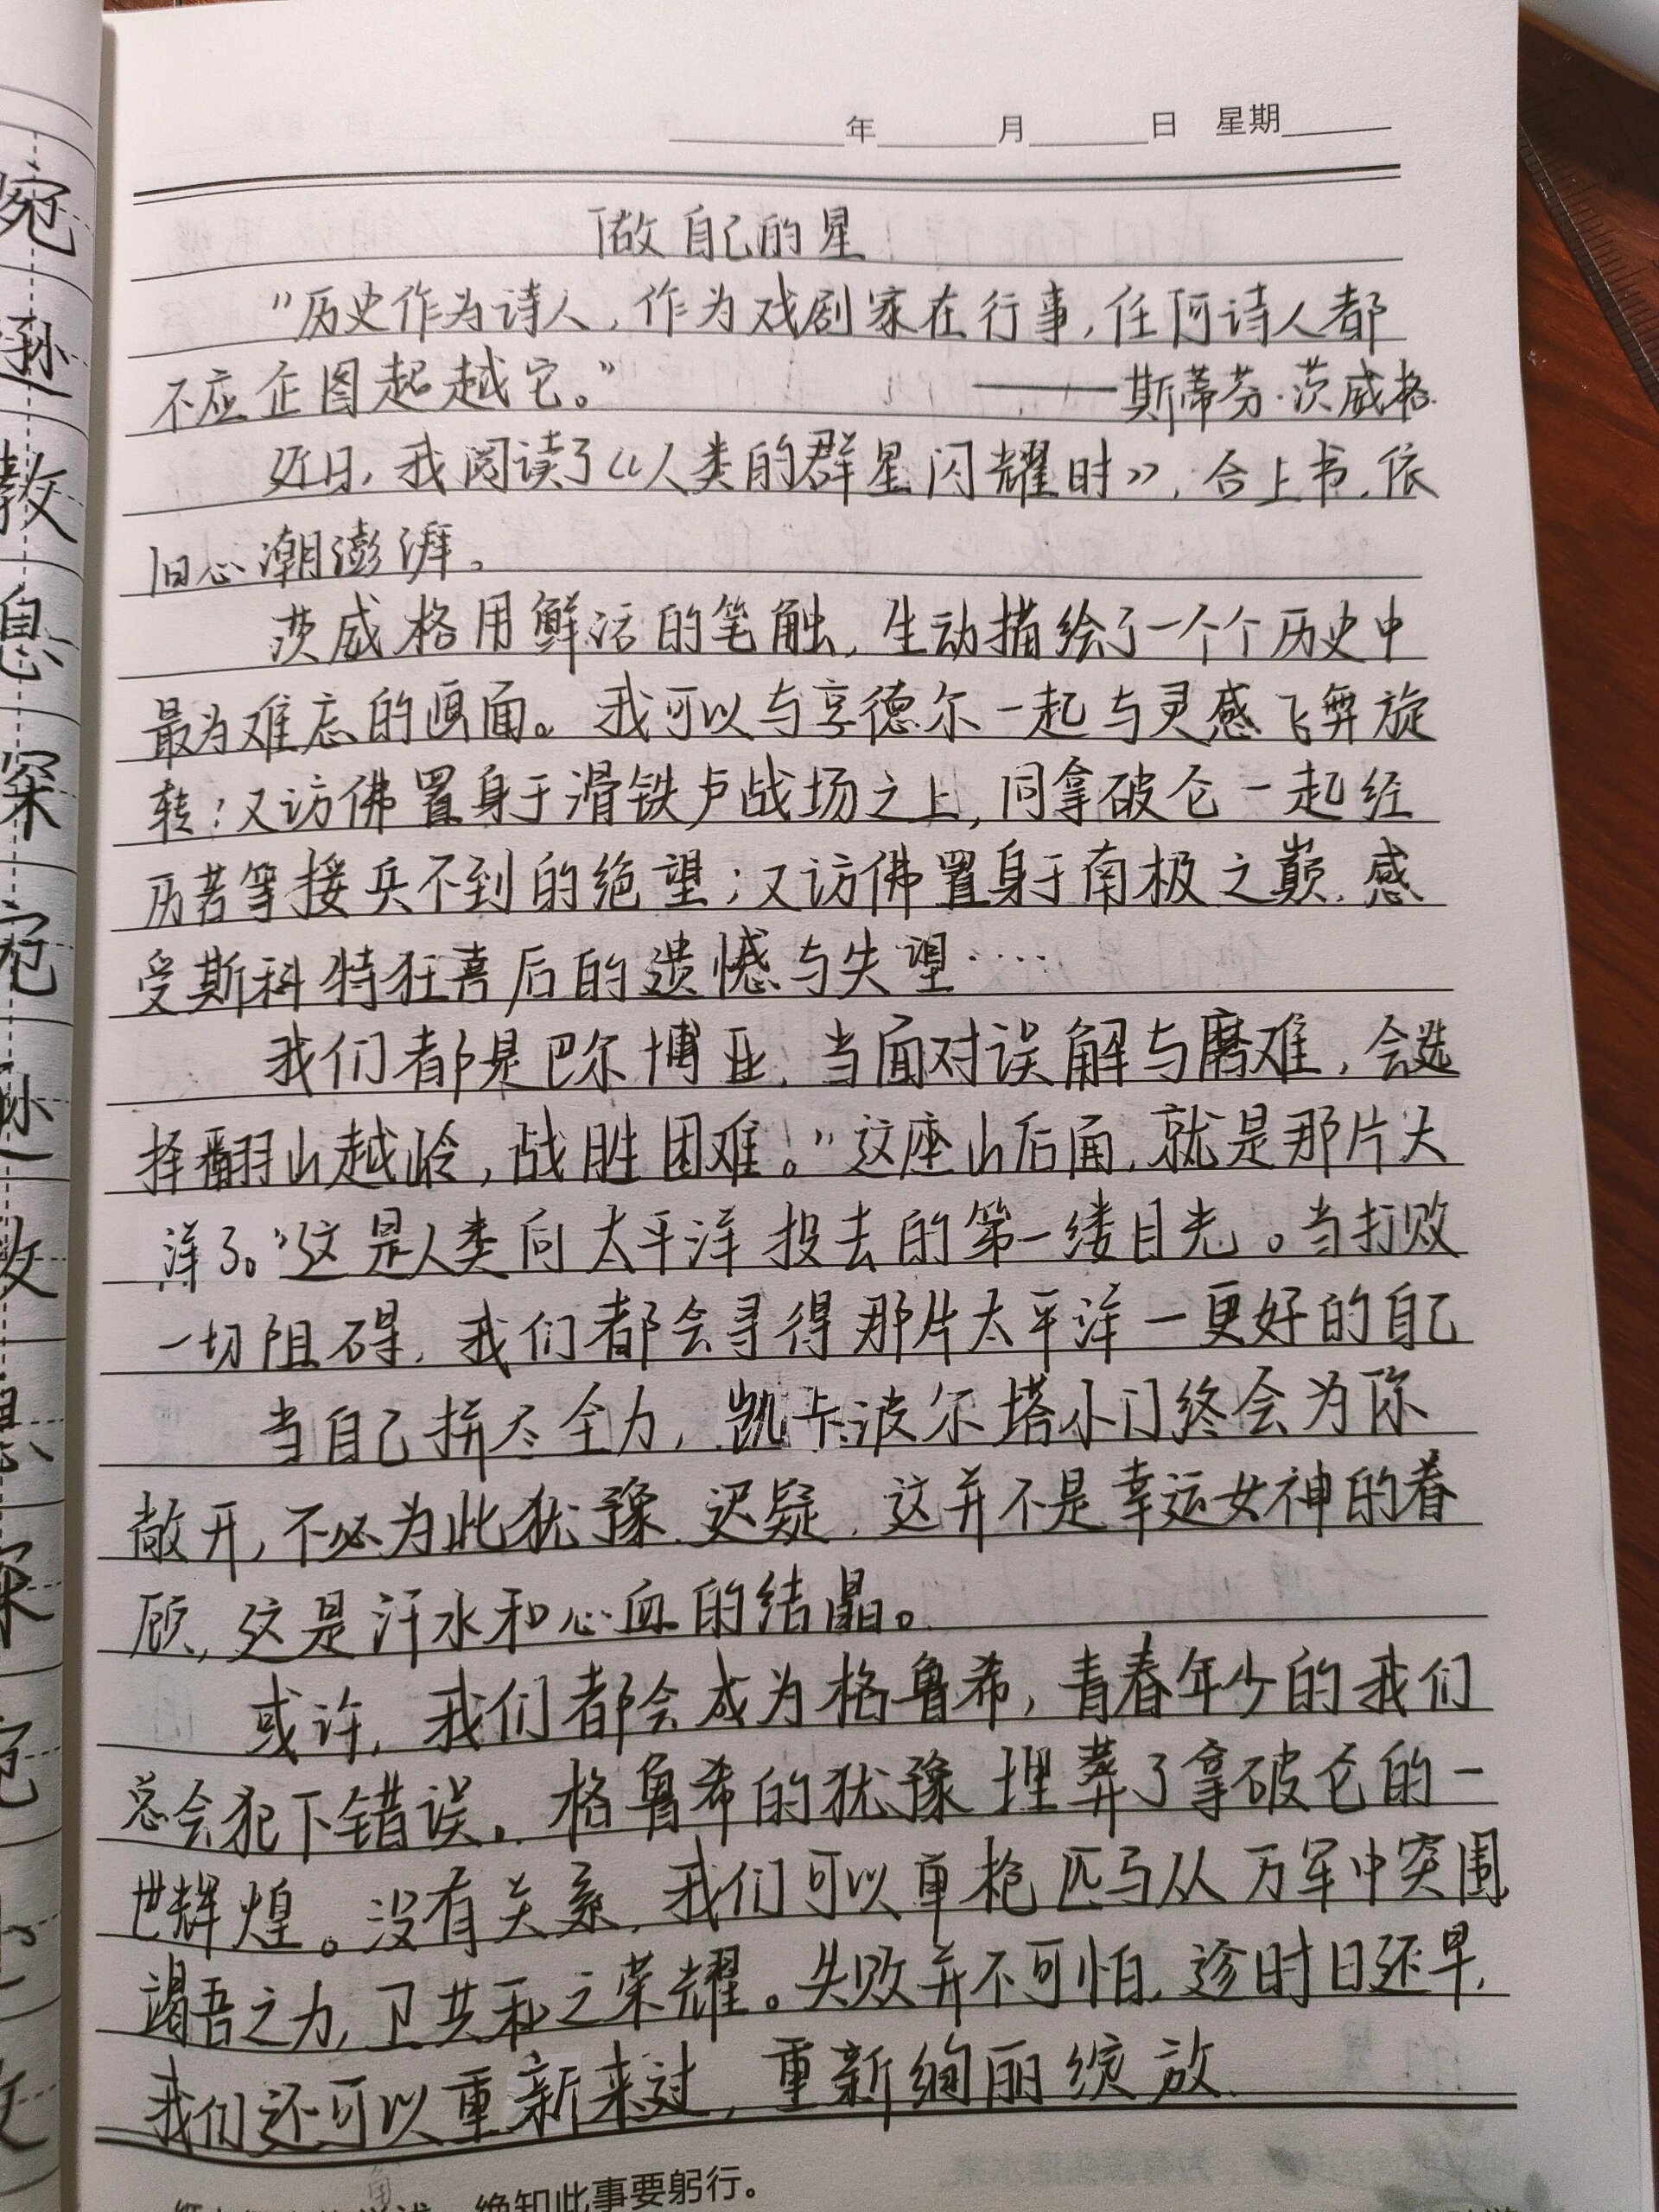 年 月 日 星期
做自己的星
"历史作为诗人,作为戏剧家在行事,任何诗人都
不应企图超越它。" ——斯蒂芬·茨威格
近日,我阅读了《人类的群星闪耀时》,合上书,依
旧心潮澎湃。
茨威格用鲜活的笔触,生动描绘了一个个历史中
最为难忘的画面。我可以与亨德尔一起与灵感飞舞旋
转;又访佛置身于滑铁卢战场之上,同拿破仑一起经
历苦等接兵不到的绝望;又访佛置身于南极之巅,感
受斯科特狂喜后的遗憾与失望····
我们都是巴尔博亚,当面对误解与磨难,会选
择翻山越岭,战胜困难。"这座山后面,就是那片大
洋了。"这是人类向太平洋投去的第一缕目光。当打败
一切阻碍,我们都会寻得那片太平洋—更好的自己
当自己拼尽全力,凯卡波尔塔小门终会为你
敞开,不必为此犹豫、迟疑,这并不是幸运女神的眷
顾,这是汗水和心血的结晶。
或许,我们都会成为格鲁希,青春年少的我们
总会犯下错误。格鲁希的犹豫埋葬了拿破仑的一
世辉煌。没有关系,我们可以单枪匹马从万军中突围
竭吾之力,卫共和之荣耀。失败并不可怕,趁时日还早,
我们还可以重新来过,重新绚丽绽放.
绝知此事要躬行。
宛
孙
教
息
深
宛
孙